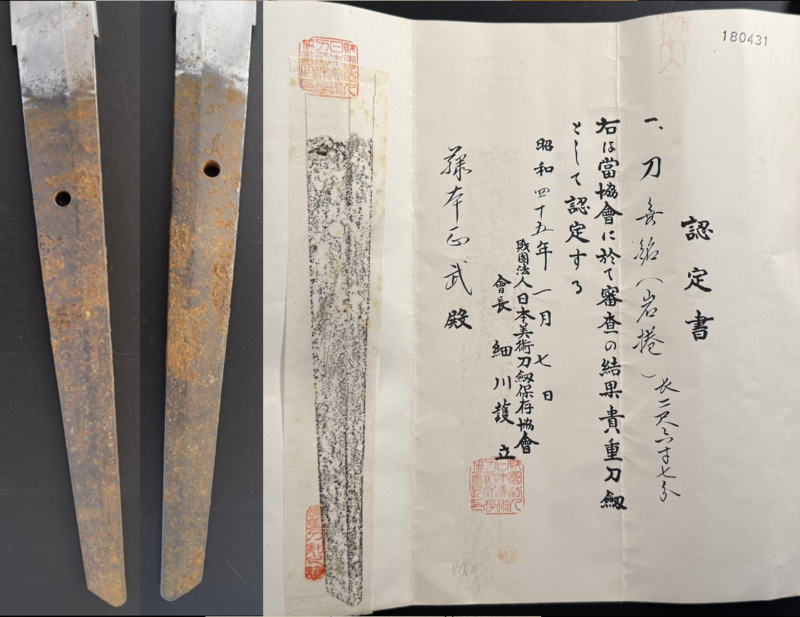 180431
認定書
一、刀 無銘(岩捲) 長二尺六寸七分
右は當協會に於て審査の結果貴重刀劔
として認定する
昭和四十五年一月七日
財團法人日本美術刀劔保存協會
會長 細川護立
藤本正武殿